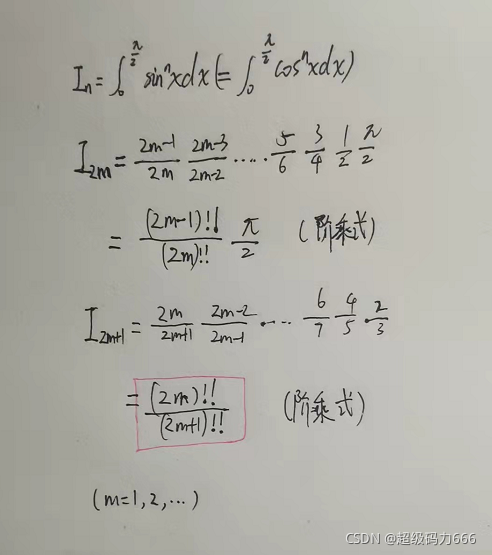 Iₙ = ∫₀^{π/2} sinⁿxdx (= ∫₀^{π/2} cosⁿxdx)
I₂ₘ = \frac{2m-1}{2m} \frac{2m-3}{2m-2} ····· \frac{5}{6} \frac{3}{4} \frac{1}{2} \frac{π}{2}
= \frac{(2m-1)!!}{(2m)!!} \frac{π}{2} (阶乘式)
I₂ₘ₊₁ = \frac{2m}{2m+1} \frac{2m-2}{2m-1} ····· \frac{6}{7} \frac{4}{5} · \frac{2}{3}
= \frac{(2m)!!}{(2m+1)!!} (阶乘式)
(m=1,2,···)
CSDN @超级码力666